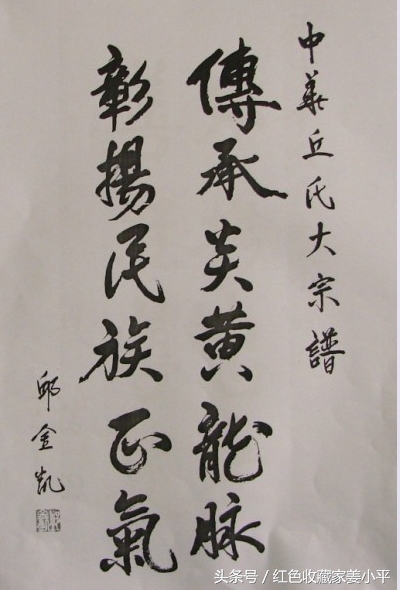 中華丘氏大宗譜
傳承炎黄龍脉
彰揚民族正氣
邱金凯
头条号／红色收藏家姜小平